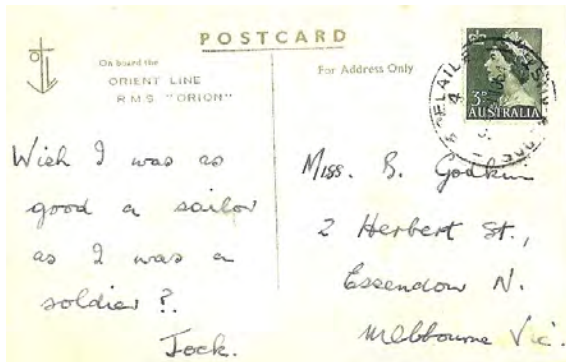 POSTCARD
On board the
ORIENT LINE
R.M.S. "ORION"
For Address Only
3D
AUSTRALIA
Wish I was as
good a sailor
as I was a
soldier ?.
Jock.
Miss. B. Godkin
2 Herbert St.,
Essendon N.
Melbourne Vic.